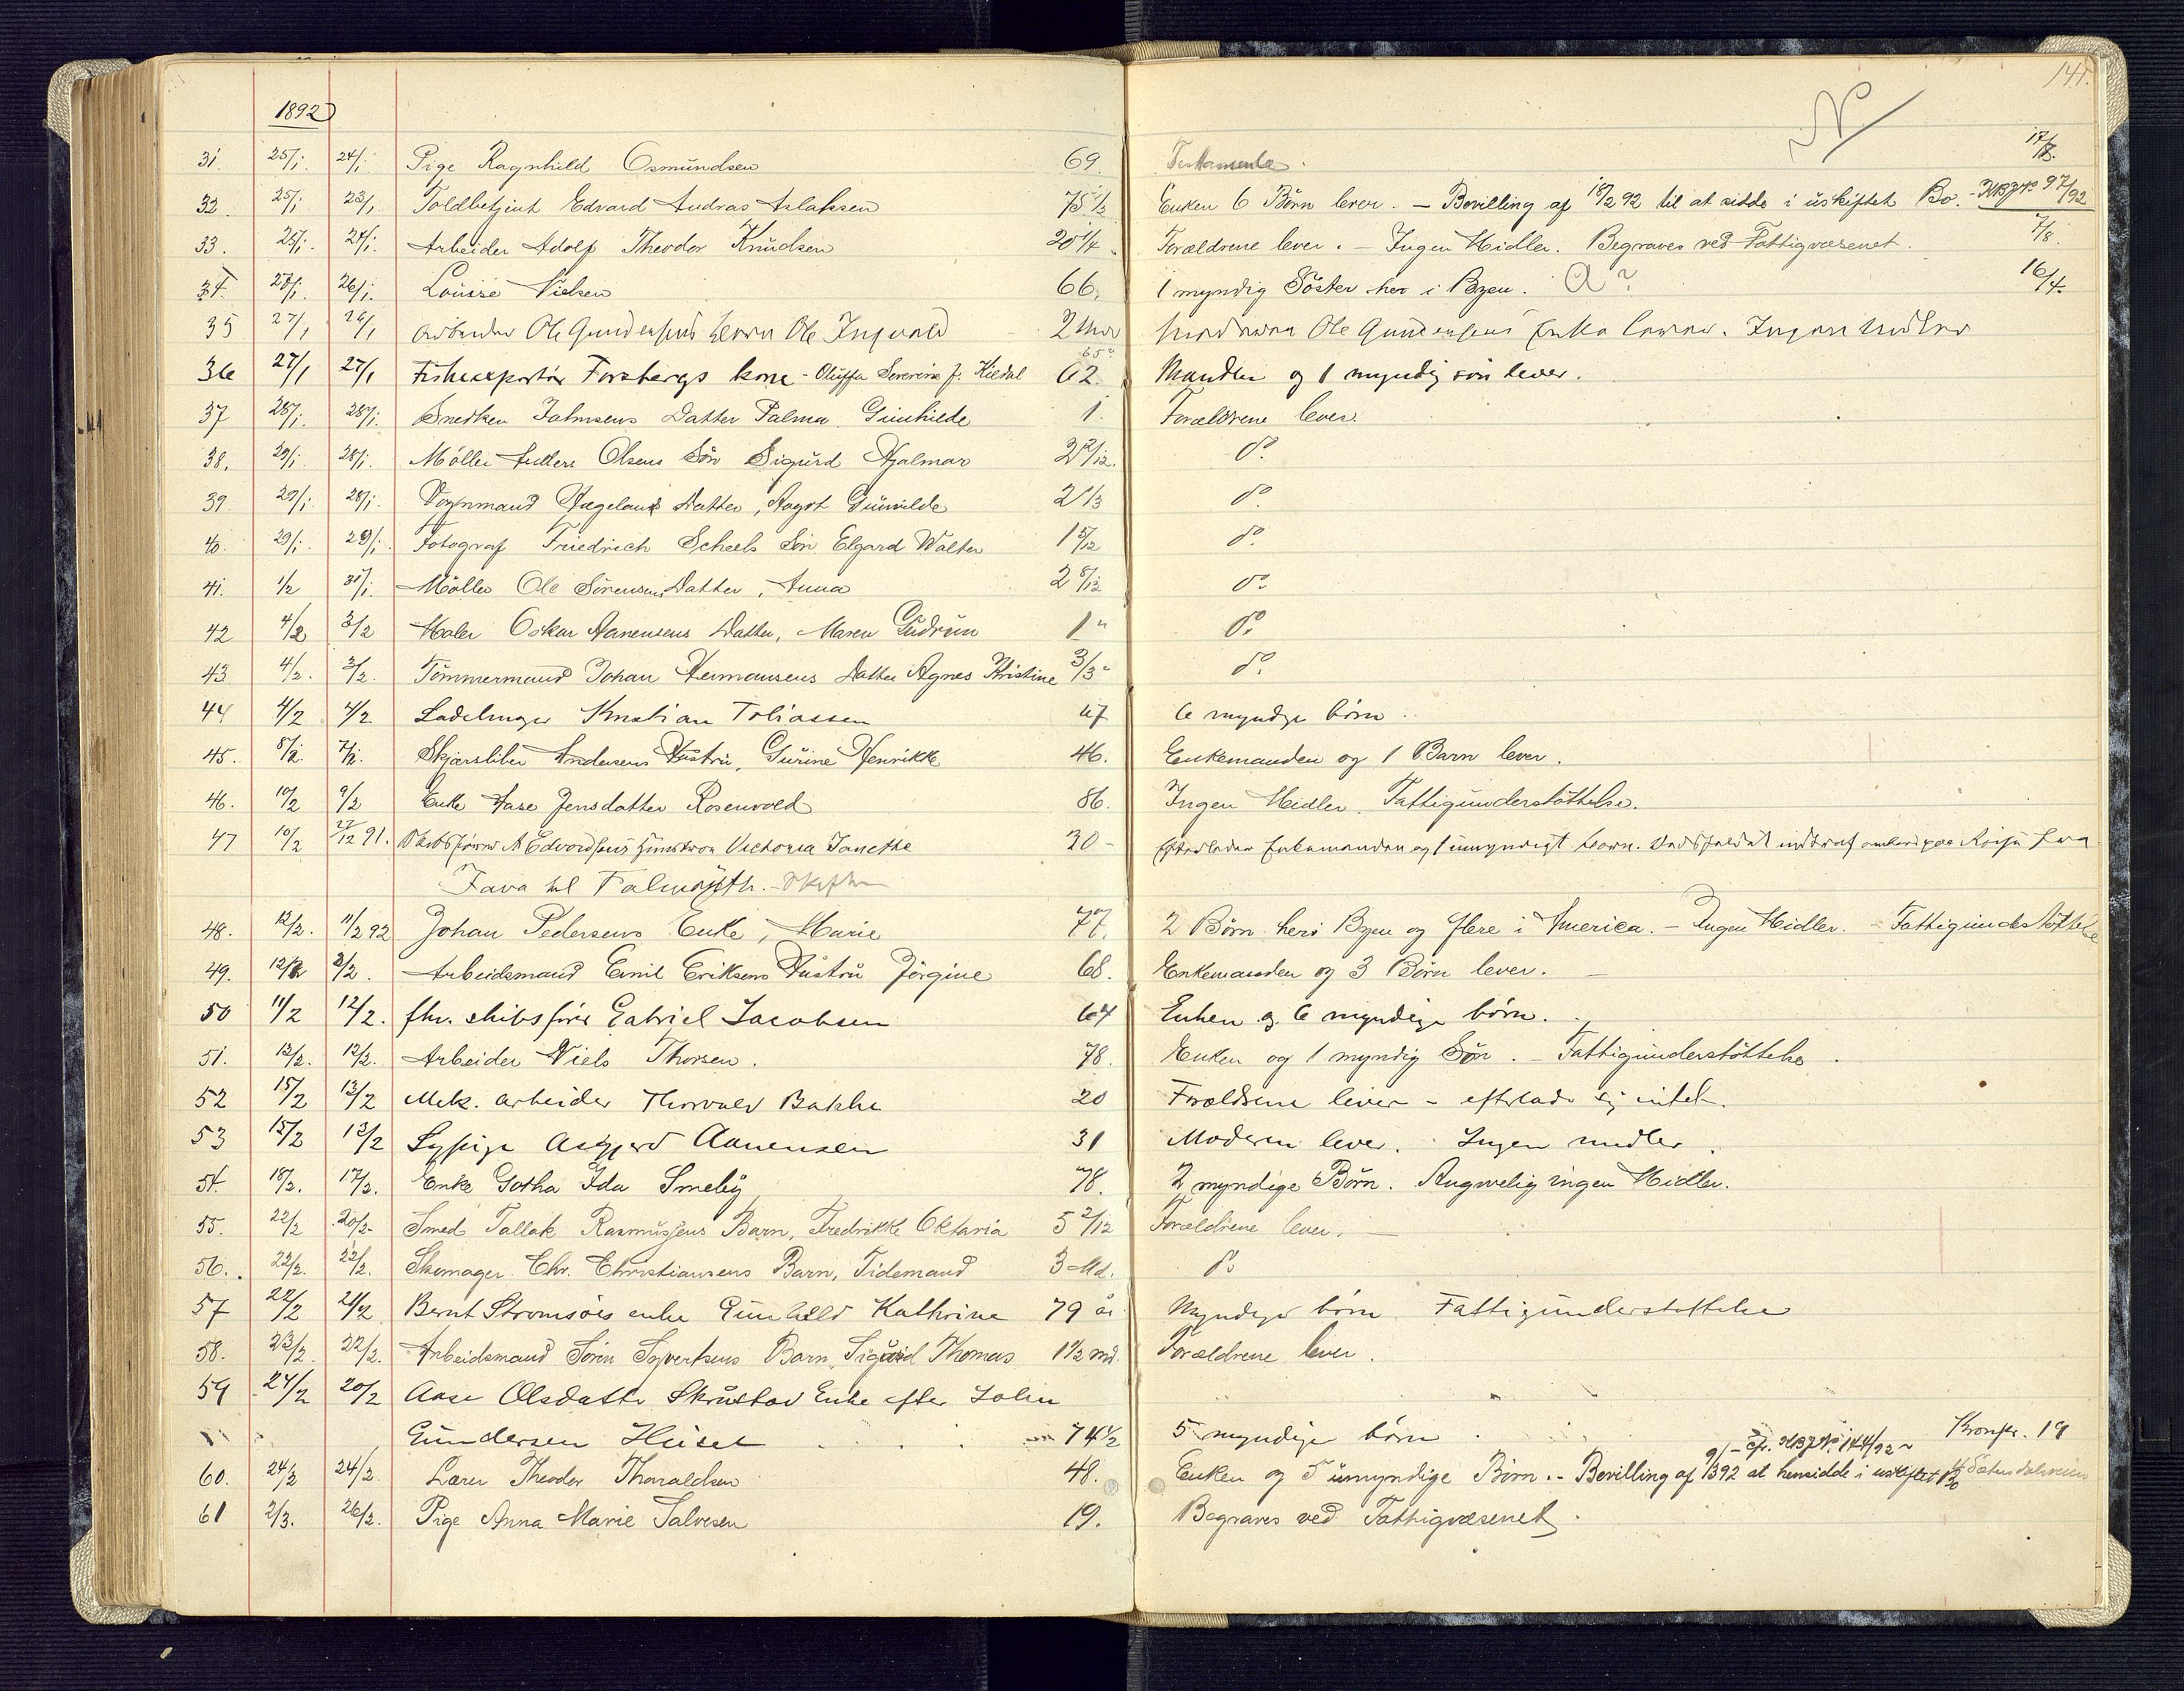 141.
1892
31. 25/1. 24/1. Pige Ragnhild Osmundsen 69. Testamente. 17/8.
32. 25/1 23/1. Toldbetjent Edvard Andras Aslaksen 75 1/2 Enken 6 Børn lever. - Bevilling af 18/2 92 til at sidde i uskiftet Bo. - 97/92
33. 25/1. 24/1. Arbeider Adolf Theodor Knudsen 20 1/4. Forældrene lever. - Ingen Midler. Begraves ved Fattigvæsenet. 7/8.
34. 27/1. 26/1. Louise Nielsen 66. 1 myndig Söster her i Byen. a? 16/4.
35 27/1 26/1 Arbeider Ole Gundersens barn Ole Ingvald 2 Ole Gundersens Enke lever. Ingen midler
36 27/1 27/1 Fiskeexportör Forsbergs kone - Oluffa Severine f. Kiedal 62. 65? Manden og 1 myndig sön lever.
37 28/1. 28/1. Snedker Jahnsens Datter Palma Gunhilde 1. Forældrene lever.
38. 29/1. 28/1. Möller Anders Olsens Sön Sigurd Hjalmar 2 2/12. do.
39. 29/1. 28/1. Vognmand Hægelands Datter, Aagot Gunvilde 2 1/3 do.
40. 29/1. 29/1. Fotograf Friedrich Scheels Sön Elgard Walter 1 5/12 do.
41. 1/2 31/1. Möller Ole Sörensens Datter, Anna 2 8/12 do.
42 4/2 3/2 Maler Oskar Aanensens Datter, Maren Gudrun 1 " do.
43 4/2. 3/2. Tömmermand Johan Hermansens Datter Agnes Kristine 3/3 " do.
44 4/2 4/2 Kristian Tobiassen 67 6 myndge börn.
45. 8/2. 7/2. Skjærsliber Andersens Hustru, Gurine Henrikke 46. Enkemanden og 1 Barn lever.
46. 10/2 9/2 Enke Aase Jensdatter Rosenvold 86. Ingen Midler. Fattigunderstöttelse.
47 10/2 27/12 91. Skibsförer A Edvardsens Hustru Victoria Janette 30 - Efterlader Enkemanden og 1 umyndigt barn. Dødsfaldet indtraf ombord paa Reise fra
Java til Falmouth. - Skifte
48. 12/2. 11/2 92 Johan Pedersens Enke, Marie 77. 2 Börn her i Byen og flere i America. - Ingen Midler. - Fattigunderstöttelse
49. 12/2 8/2. Arbeidsmand Emil Eriksens Hustru Jörgine 68. Enkemanden og 3 Börn lever. -
50 11/2 12/2. fhv. skibsförer Gabriel Jacobsen 64 Enken og 6 myndige börn.
51. 13/2. 12/2. Arbeider Niels Thorsen. 78. Enken og 1 myndig Sön. - Fattigunderstöttelse.
52 15/2 13/2 Mek. arbeider Thorvald Bakke 20 Forældrene lever - efterlader sig intet.
53 15/2 13/2 Sypige Asgjerd Aanensen 31 Moderen lever. Ingen midler.
54. 18/2. 17/2. Enke Gotha Ida Smeby 78. 2 myndige Börn. Angivelig ingen Midler.
55. 22/2 20/2. Smed Tallak Rasmussens Barn, Fredrikke Oktavia 5 2/12 Forældrene lever. -
56. 22/2. 22/2. Skomager Chr. Christiansens Barn, Tidemand 3 Md. do
57 22/2 21/2 Bernt Strömsöes enke Gunhild Kathrine 79 år Myndige börn Fattigunderstöttelse
58. 23/2. 22/2. Arbeidsmand Sörin Syvertsens Barn, Sigurd Thomas 1 1/2 md. Forældrene lever.
59 24/2 20/2 Aase Olsdatter Skrustad Enke efter John
Gundersen Huset 74 1/2 5 myndige börn. Kronpr. 19
60. 24/2 24/2. Lærer Theodor Thoraldsen 48. Enken og 5 umyndige Börn. - Bevilling af 9/3 92 at hensidde i uskiftet Bo - cfr. 144/92 Sætersdalsveien
61 2/3. 26/2. Pige Anna Marie Salvesen 19. Begraves ved Fattigvæsenet.